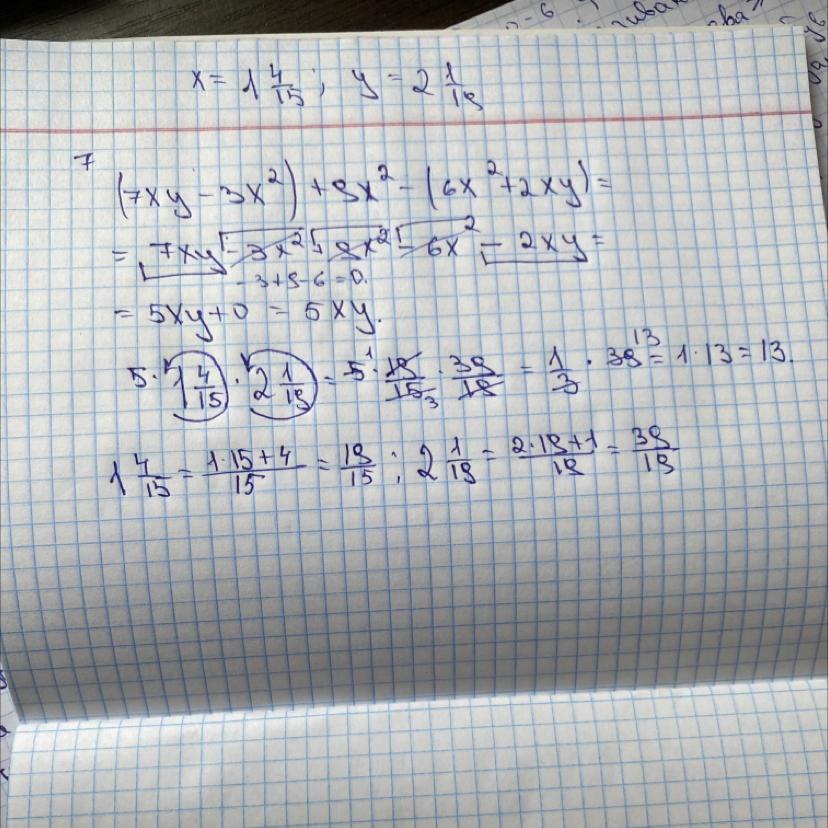 x = 1 4/15 ; y = 2 1/19
7
(7xy - 3x²) + 9x² - (6x² + 2xy) =
= 7xy - 3x² + 9x² - 6x² - 2xy =
- 3 + 9 - 6 = 0.
= 5xy + 0 = 5xy.
5 · 1 4/15 · 2 1/19 = 5 1 · 19/15 3 · 39/19 = 1/3 · 39 13 = 1 · 13 = 13.
1 4/15 = 1·15+4/15 = 19/15 ; 2 1/19 = 2·19+1/19 = 39/19